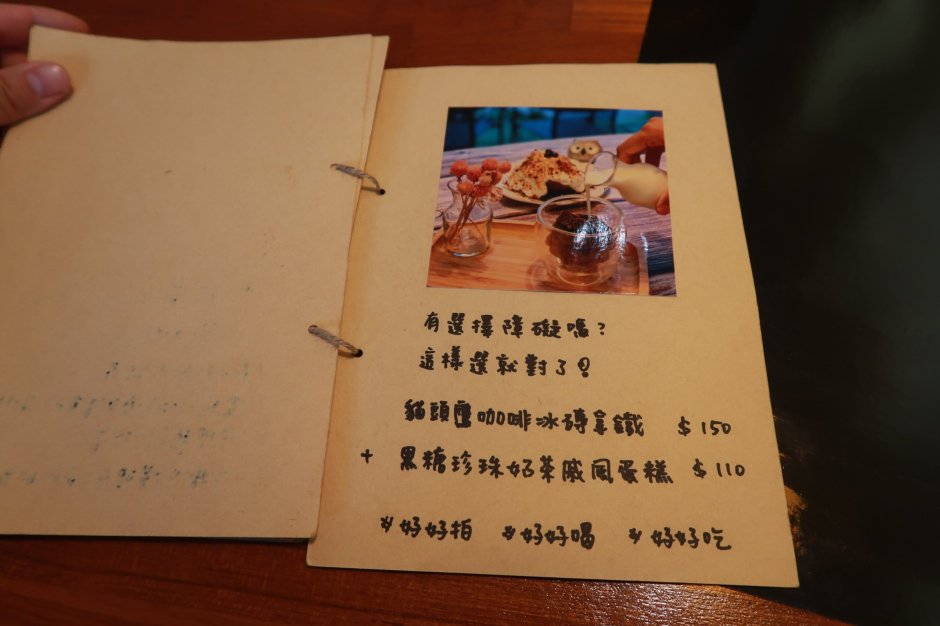 有選擇障礙嗎?
這樣選就對了!
貓頭鷹咖啡冰磚拿鐵 $150
+ 黑糖珍珠奶茶戚風蛋糕 $110
#好好拍 #好好喝 #好好吃